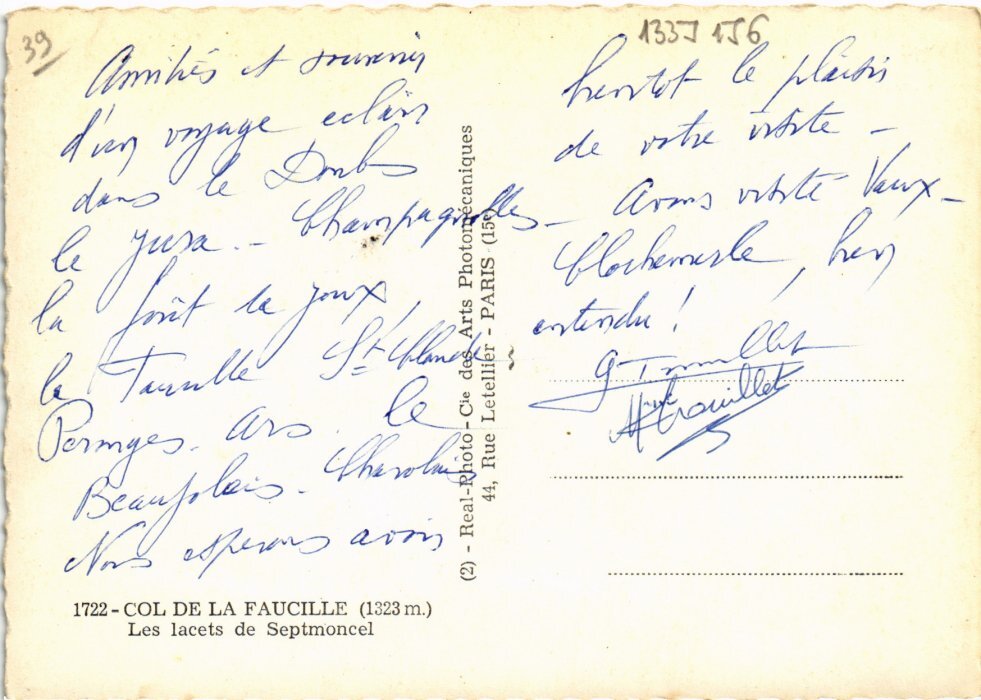 39
133J 1J6
Amitiés et souvenir
d'un voyage eclair
dans le Doubs
le Jura - Champagnolles -
la forêt la joux,
la Faucille St Claude
Perouges. Ars. le
Beaujolais. Charolais
Nous esperons avoir
bientot le plaisir
de votre visite -
Avons visité Vaux -
Clochemerle, bien
entendu !
G Trouillet
Mme Trouillet
(2) - Real-Photo - Cie des Arts Photomécaniques
44, Rue Letellier - PARIS (15e)
1722 - COL DE LA FAUCILLE (1323 m.)
Les lacets de Septmoncel